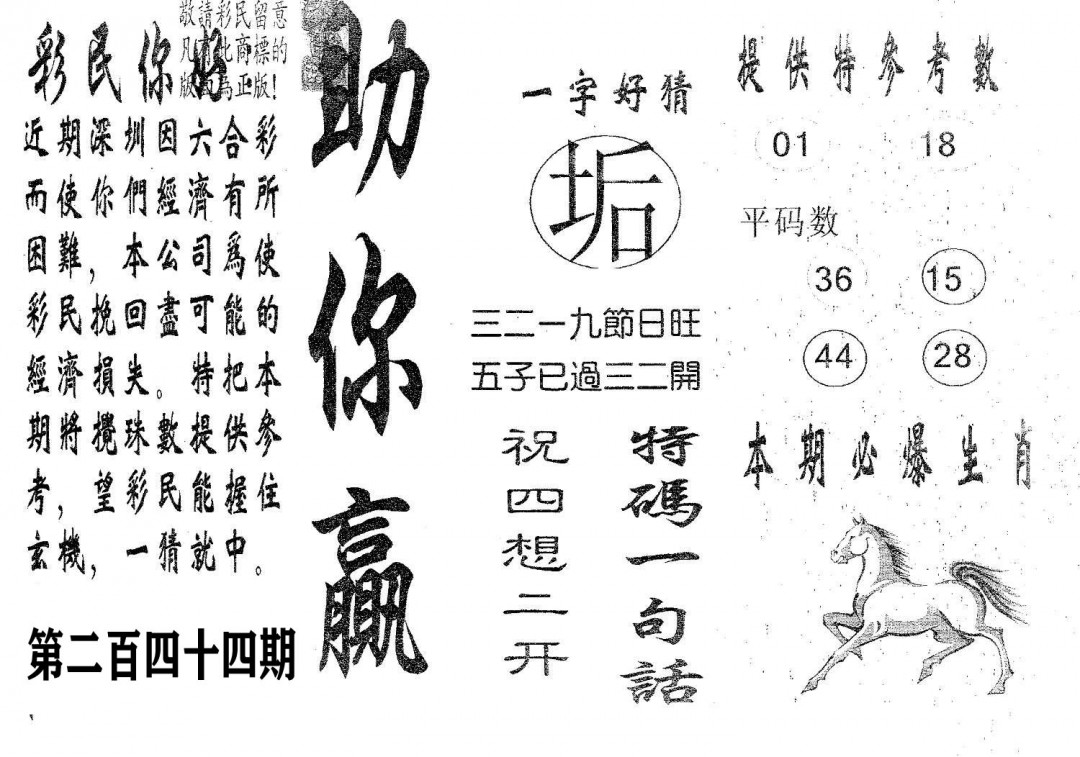 敬請彩民留意
商標的
版為正版!
彩民你好
近期深圳因六合彩
而使你們經濟有所
困難，本公司爲使
彩民挽回盡可能的
經濟損失。特把本
期將攪珠數提供參
考，望彩民能握住
玄機，一猜就中。
第二百四十四期
助你贏
一字好猜
垢
三二一九節日旺
五子已過三二開
特碼一句話
祝四想二开
提供特參考數
01 18
平码数
36 15
44 28
本期必爆生肖